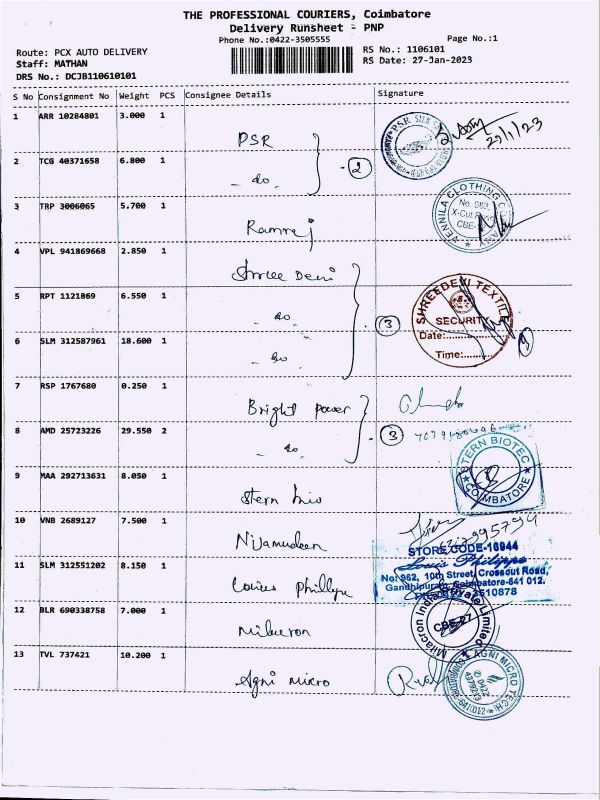 THE PROFESSIONAL COURIERS, Coimbatore
Delivery Runsheet - PNP
Phone No.:0422-3505555
Page No.:1
Route: PCX AUTO DELIVERY
RS No.: 1106101
Staff: MATHAN
RS Date: 27-Jan-2023
DRS No.: DCJB110610101
S No Consignment No Weight PCS Consignee Details Signature
1 ARR 10284801 3.000 1
PSR
27/1/23
2 TCG 40371658 6.800 1
- do. 2
3 TRP 3006065 5.700 1
Ramraj
VENNILA CLOTHING COMPANY
No. 963,
X-Cut Road
CBE-
4 VPL 941869668 2.850 1
Shree Devi
5 RPT 1121869 6.550 1
- do. 3
SHREEDEVI TEXTILE
SECURITY
Date:
Time:
6 SLM 312587961 18.600 1
- do.
7 RSP 1767680 0.250 1
Bright power
8 AMD 25723226 29.550 2
- do. 3
STERN BIOTEC
COIMBATORE
9 MAA 292713631 8.050 1
Stern bio
10 VNB 2689127 7.500 1
Nijamudeen
STORE CODE-16944
Louis Philippe
No: 962, 10th Street, Crosscut Road,
Gandhipuram, Coimbatore-641 012.
11 SLM 312551202 8.150 1
Louies phillipe
12 BLR 690338758 7.000 1
Milacron
Milacron India Private Limited
CBE-27
13 TVL 737421 10.200 1
Agni Micro
AGNI MICRO TECH
0422